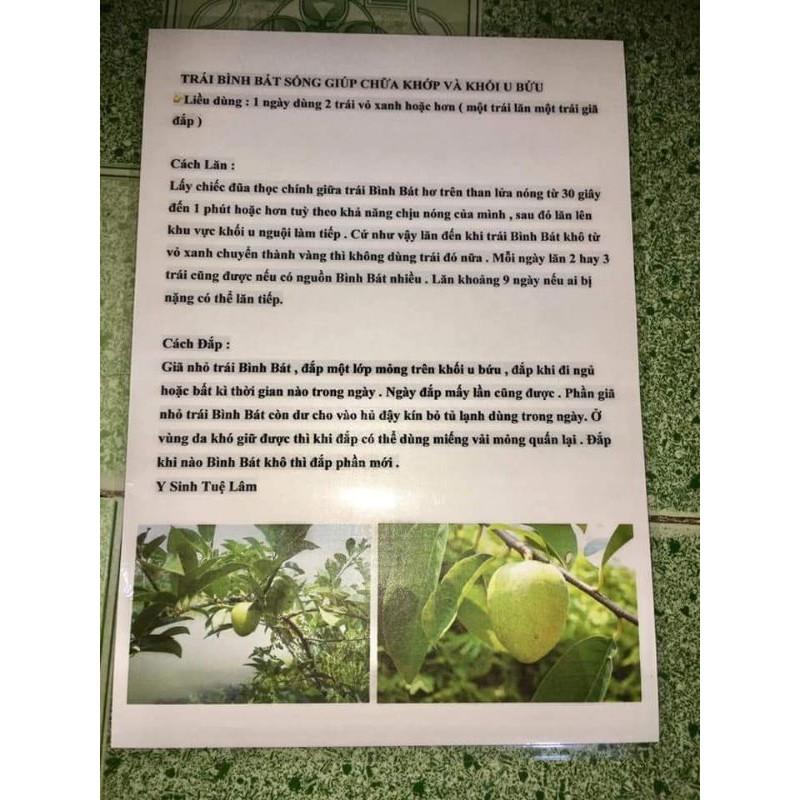 TRÁI BÌNH BÁT SỐNG GIÚP CHỮA KHỚP VÀ KHỐI U BỨU
Liều dùng : 1 ngày dùng 2 trái vỏ xanh hoặc hơn ( một trái lăn một trái giã
đắp )
Cách Lăn :
Lấy chiếc đũa thọc chính giữa trái Bình Bát hơ trên than lửa nóng từ 30 giây
đến 1 phút hoặc hơn tuỳ theo khả năng chịu nóng của mình , sau đó lăn lên
khu vực khối u nguội làm tiếp . Cứ như vậy lăn đến khi trái Bình Bát khô từ
vỏ xanh chuyển thành vàng thì không dùng trái đó nữa . Mỗi ngày lăn 2 hay 3
trái cũng được nếu có nguồn Bình Bát nhiều . Lăn khoảng 9 ngày nếu ai bị
nặng có thể lăn tiếp.
Cách Đắp :
Giã nhỏ trái Bình Bát , đắp một lớp mỏng trên khối u bứu , đắp khi đi ngủ
hoặc bất kì thời gian nào trong ngày . Ngày đắp mấy lần cũng được . Phần giã
nhỏ trái Bình Bát còn dư cho vào hủ đậy kín bỏ tủ lạnh dùng trong ngày. Ở
vùng da khó giữ được thì khi đắp có thể dùng miếng vải mỏng quấn lại . Đắp
khi nào Bình Bát khô thì đắp phần mới .
Y Sinh Tuệ Lâm